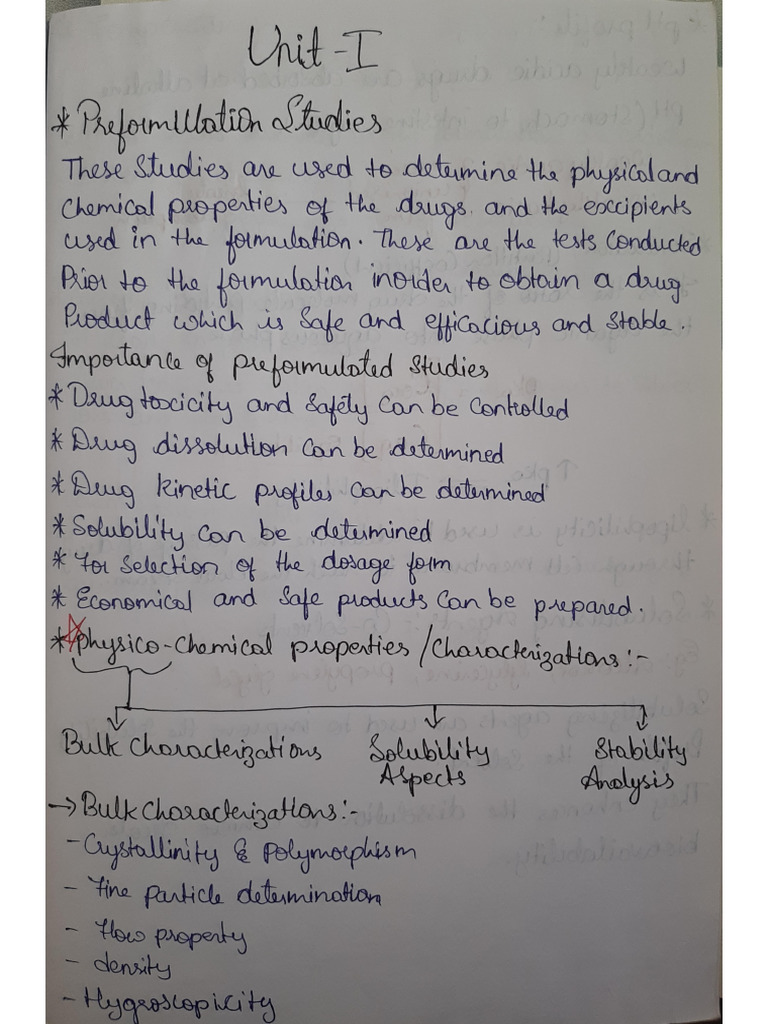 Unit-I
* Preformulation Studies
These Studies are used to determine the physical and
Chemical properties of the drugs and the excipients
used in the formulation. These are the tests Conducted
Prior to the formulation inorder to obtain a drug
Product which is Safe and efficacious and Stable.
Importance of preformulated Studies
* Drug toxicity and Safety Can be Controlled
* Drug dissolution Can be determined
* Drug kinetic profiles Can be determined
* Solubility Can be determined
* For Selection of the dosage form
* Economical and Safe products Can be prepared.
* Physico-Chemical properties / Characterizations:-
Bulk Characterizations Solubility Aspects Stability Analysis
→ Bulk Characterizations:-
- Crystallinity & polymorphism
- Fine particle determination
- Flow property
- density
- Hygroscopicity